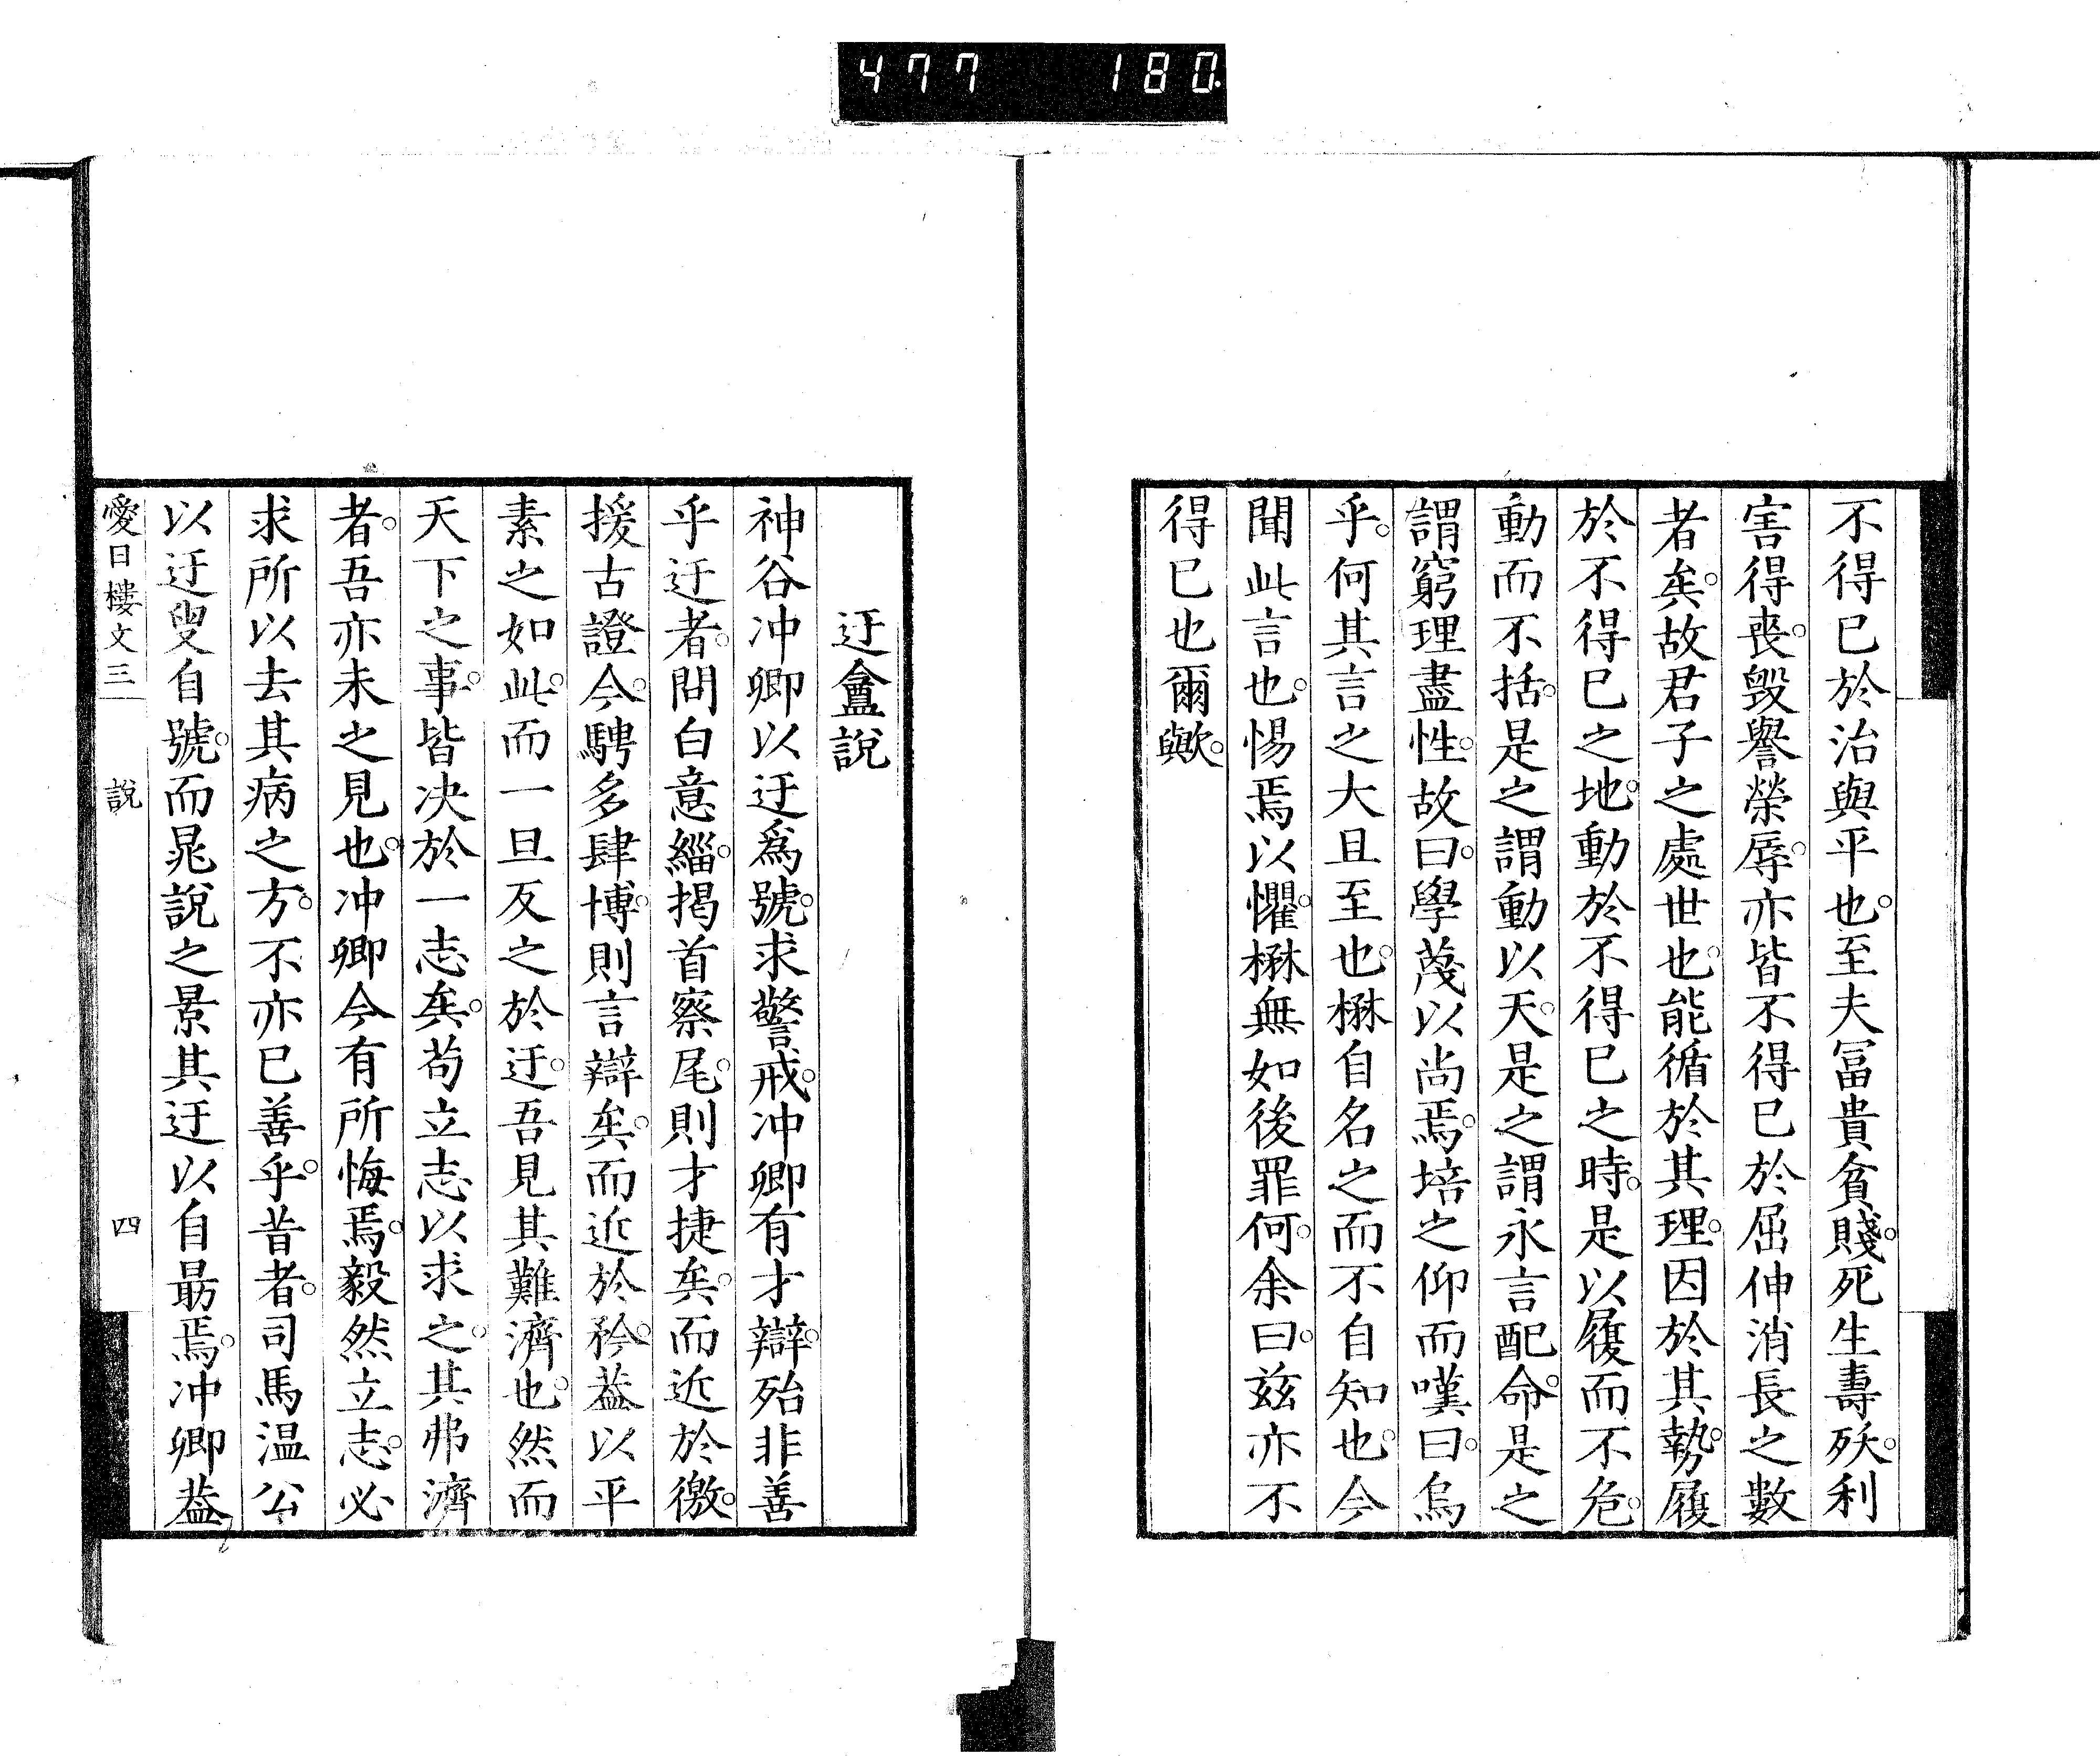 477 180.
不得已於治與平也。至夫冨貴貧賤。死生壽殀。利
害得喪。毀譽榮辱。亦皆不得已於屈伸消長之數
者矣。故君子之處世也。能循於其理。因於其勢。履
於不得已之地。動於不得已之時。是以履而不危。
動而不括。是之謂動以天。是之謂永言配命。是之
謂窮理盡性。故曰。學蔑以尚焉。培之仰而嘆曰。烏
乎。何其言之大且至也。楙自名之而不自知也。今
聞此言也。惕焉以懼。楙無如後罪何。余曰。玆亦不
得已也爾歟。
迂盦說
神谷冲卿以迂爲號。求警戒。冲卿有才辯。殆非善
乎迂者。問白意緇。揭首察尾。則才捷矣。而近於徼。
援古證今。騁多肆博。則言辯矣。而近於矜。葢以平
素之如此。而一旦反之於迂。吾見其難濟也。然而
天下之事。皆决於一志矣。苟立志以求之。其弗濟
者。吾亦未之見也。冲卿今有所悔焉。毅然立志。必
求所以去其病之方。不亦已善乎。昔者。司馬温公
以迂叟自號。而晁說之景其迂以自勗焉。冲卿葢
愛日樓文三 說 四